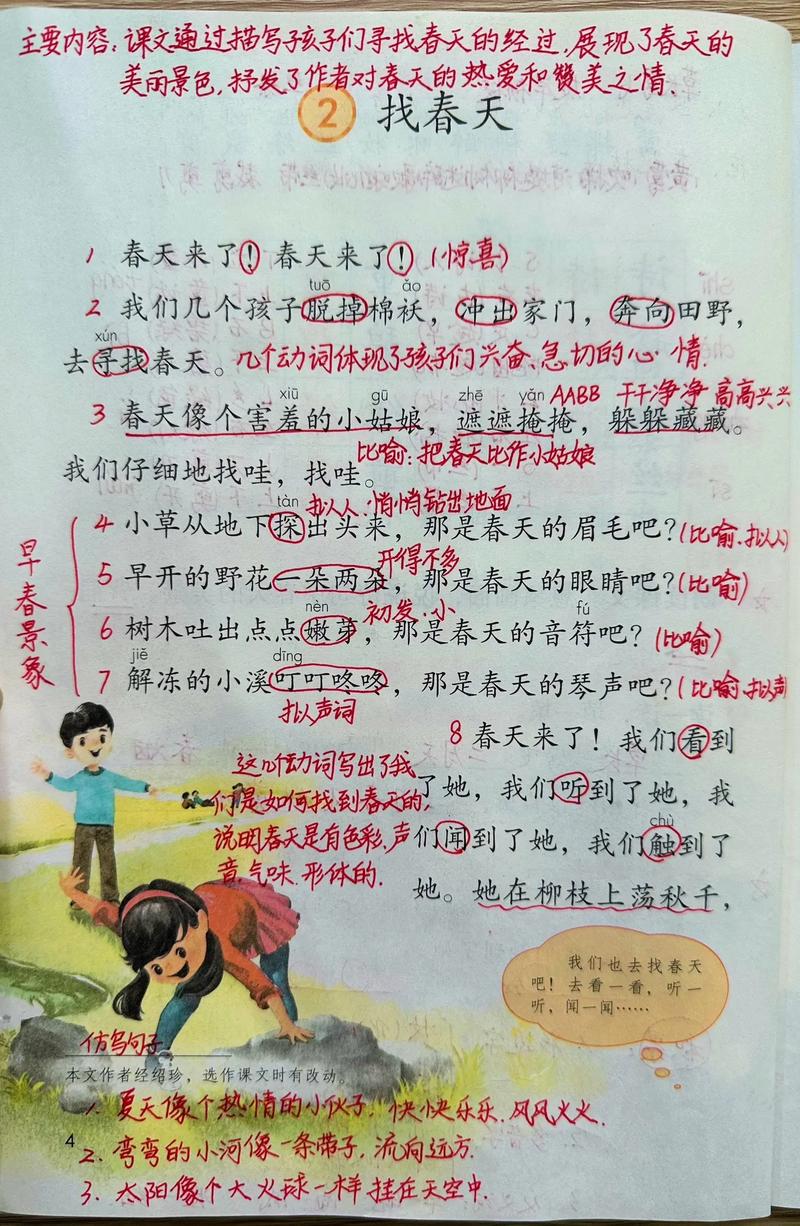 主要内容：课文通过描写子孩子们寻找春天的经过，展现了春天的
美丽景色，抒发了作者对春天的热爱和赞美之情.
2 找春天
1 春天来了！春天来了！(惊喜)
tuō ǎo
2 我们几个孩子脱掉棉袄，冲出家门，奔向田野，
xún
去寻找春天。几个动词体现了孩子们兴奋、急切的心情.
xiū gū zhē yǎn AABB 干干净净 高高兴兴
3 春天像个害羞的小姑娘，遮遮掩掩，躲躲藏藏。
我们仔细地找哇，找哇。比喻：把春天比作小姑娘
tàn 拟人：悄悄钻出地面
4 小草从地下探出头来，那是春天的眉毛吧？(比喻、拟人)
开得不多
5 早开的野花一朵两朵，那是春天的眼睛吧？(比喻)
nèn 初发.小 fú
6 树木吐出点点嫩芽，那是春天的音符吧？(比喻)
jiě dīng
7 解冻的小溪叮叮咚咚，那是春天的琴声吧？(比喻、拟声)
拟声词
早春景象
8 春天来了！我们看到
了她，我们听到了她，我
chù
们闻到了她，我们触到了
她。她在柳枝上荡秋千，
这几个动词写出了我
们是如何找到春天的，
说明春天是有色彩、声
音、气味、形体的.
我们也去找春天
吧！去看一看，听一
听，闻一闻……
仿写句子
本文作者经绍珍，选作课文时有改动。
1. 夏天像个热情的小伙子，快快乐乐、风风火火.
4
2. 弯弯的小河像一条带子，流向远方.
3. 太阳像个大火球一样挂在天空中.